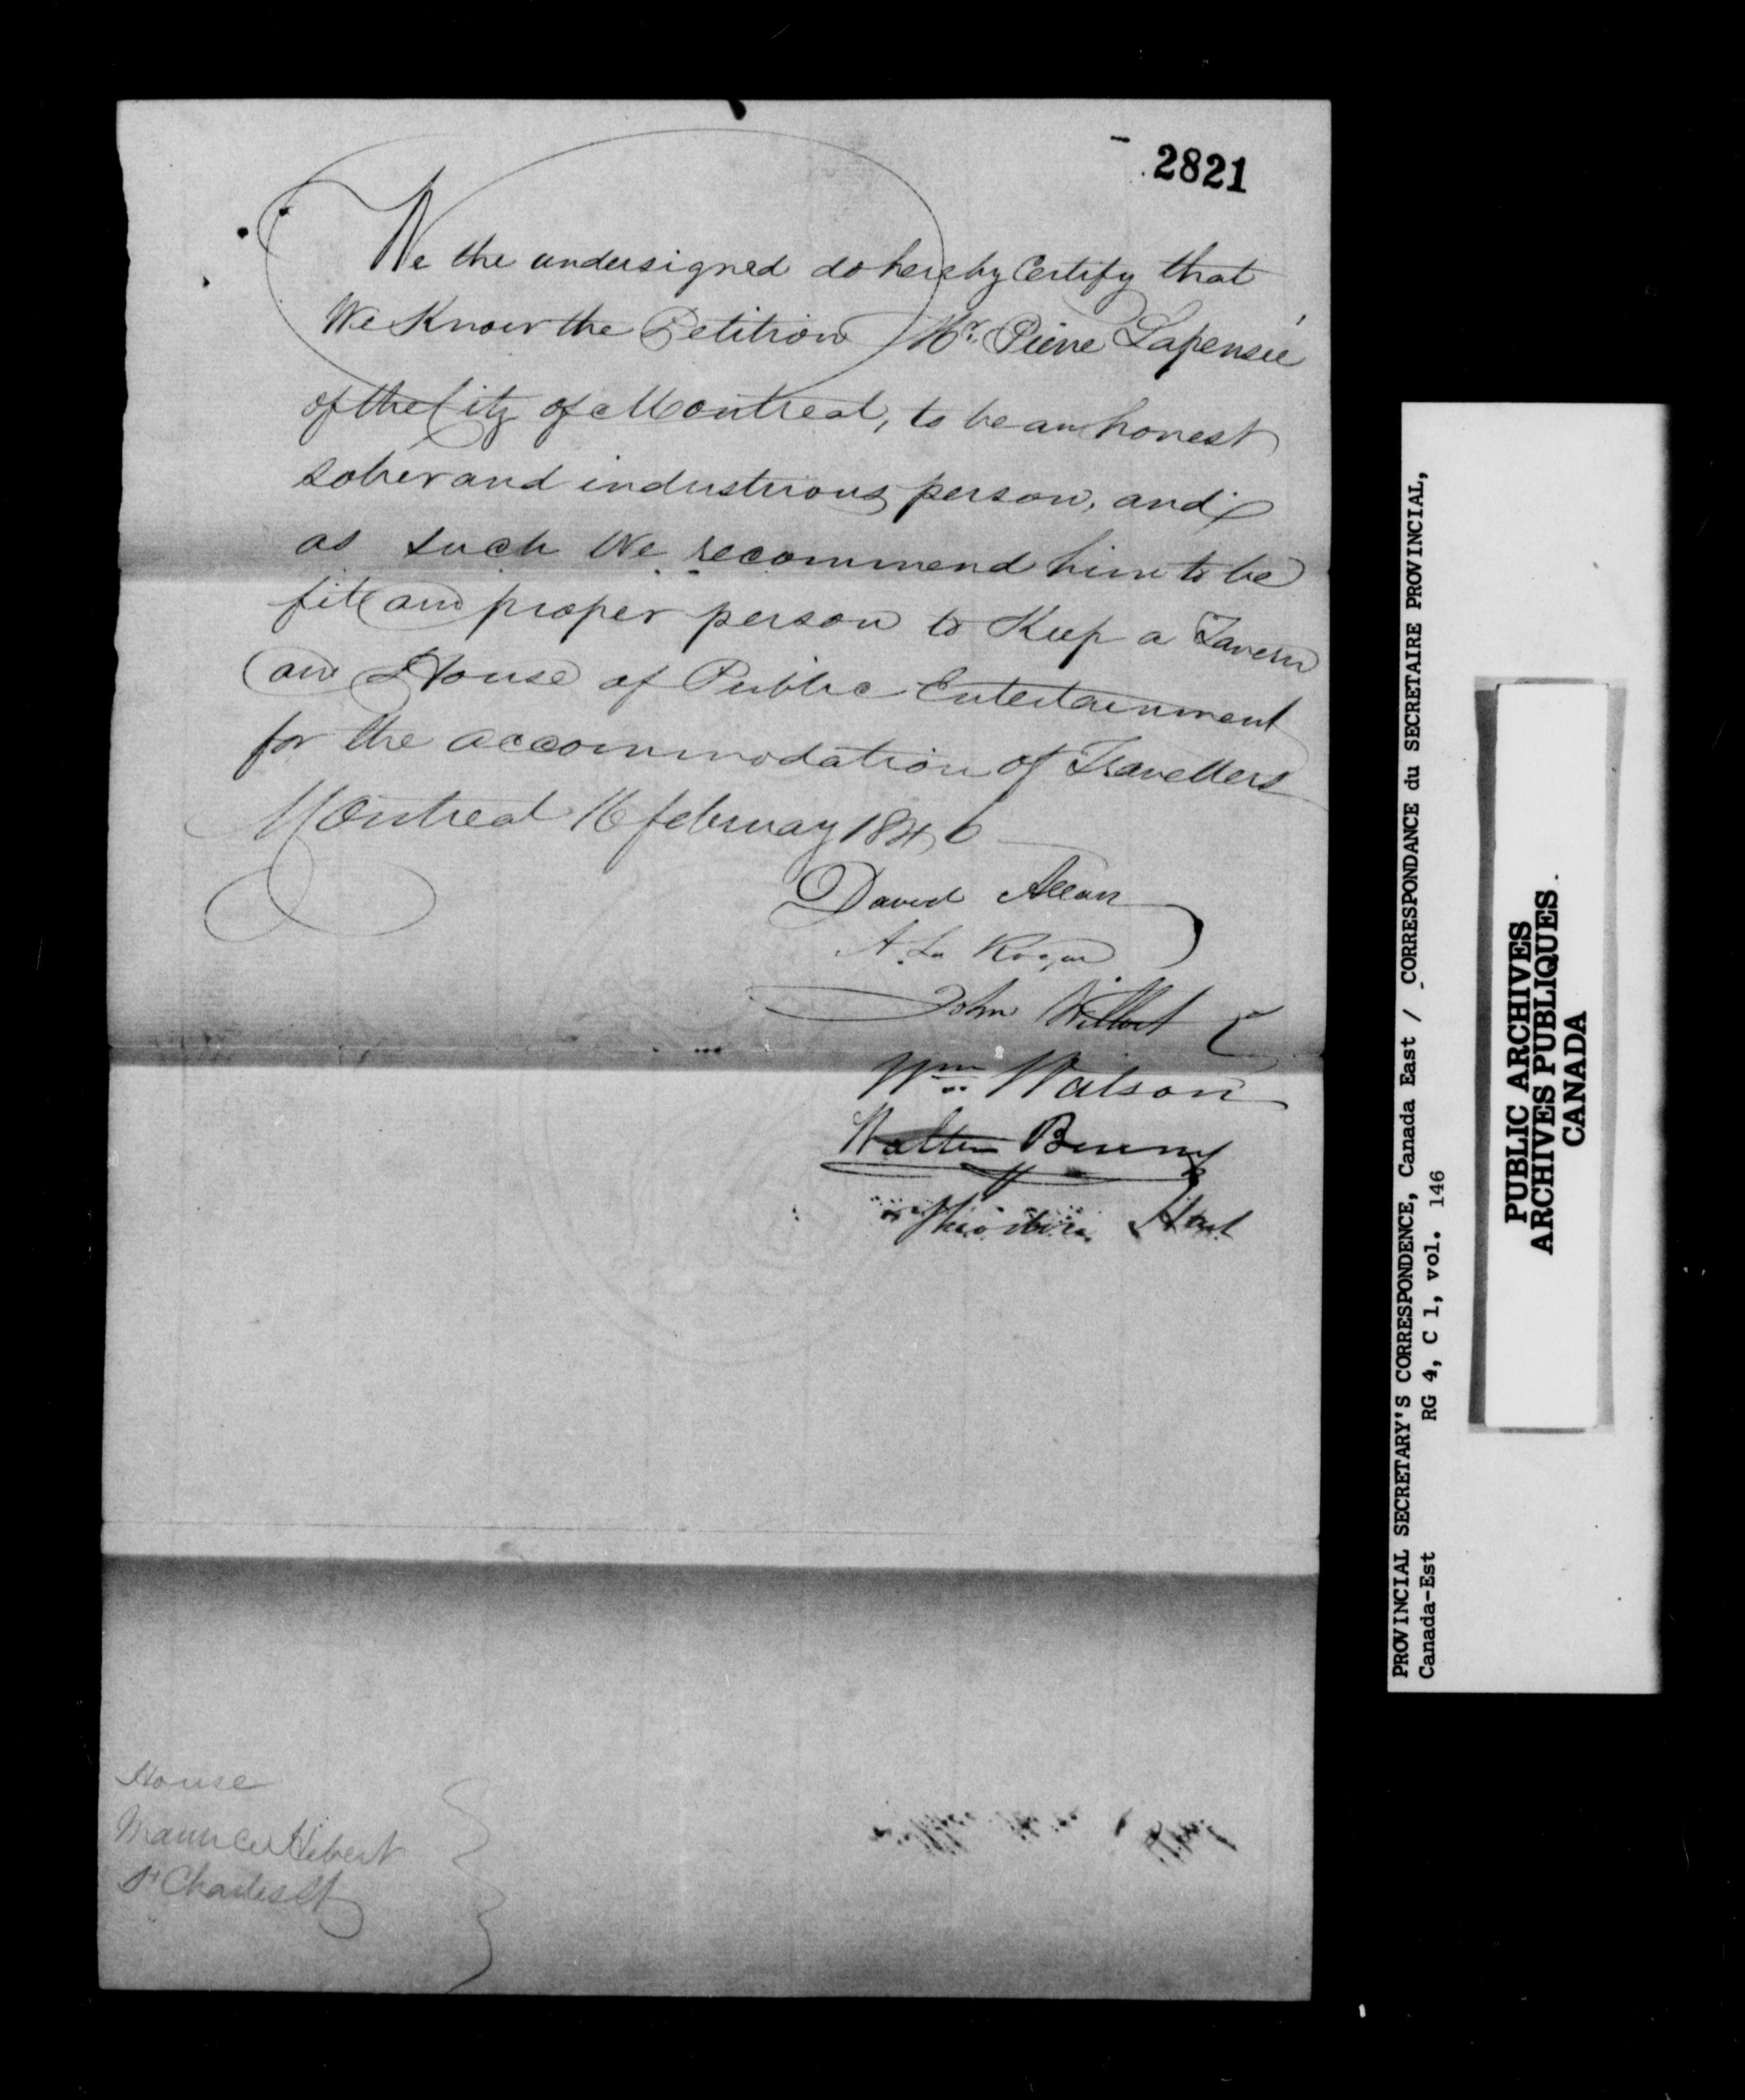 2821
We the undersigned do hereby Certify that
We Know the Petition Mr. Pierre Lapensée
of the City of Montreal, to be an honest
sober and industrious person, and
as such We recommend him to be
fit and proper person to Keep a Tavern
and House of Public Entertainment
for the accommodation of Travellers
Montreal 16 february 1846
David Allan
A. La Rocque
John
Wm Watson
Walter Benny
Theodore Hart
House
Maurice Hebert
St Charles St
PROVINCIAL SECRETARY'S CORRESPONDENCE, Canada East / CORRESPONDANCE du SECRETAIRE PROVINCIAL,
Canada-Est RG 4, C 1, vol. 146
PUBLIC ARCHIVES
ARCHIVES PUBLIQUES
CANADA